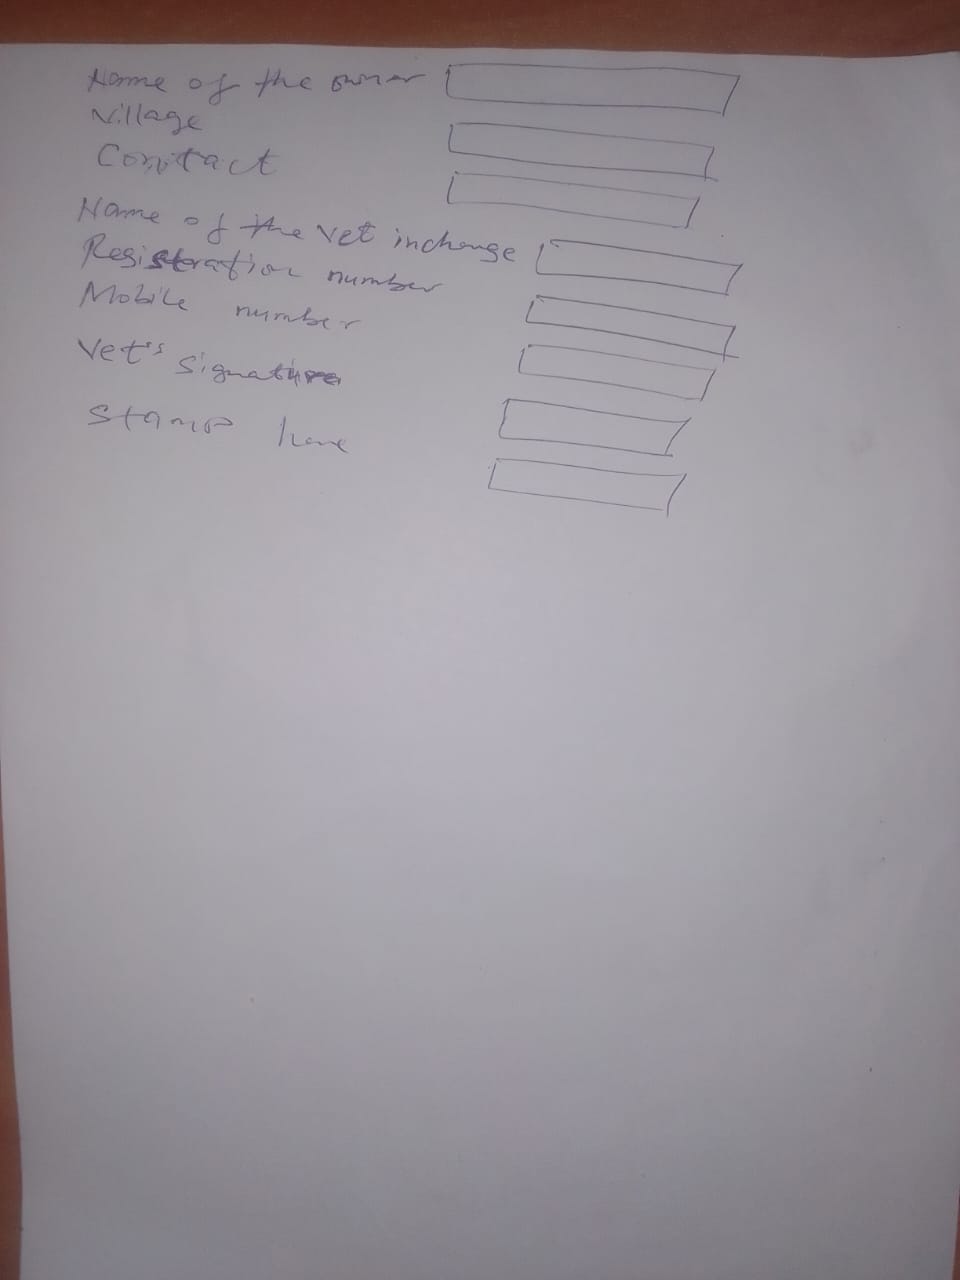 Name of the owner
Village
Contact
Name of the vet incharge
Registration number
Mobile number
Vet's signature
Stamp here